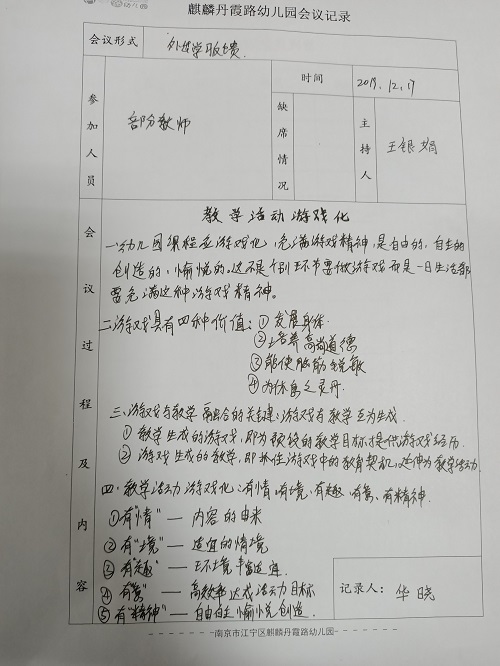 麒麟丹霞路幼儿园会议记录
会议形式
外出学习反馈.
参加人员
部分教师
时间
2019.12.17
缺席情况
主持人
王银娟
会议过程及内容
教学活动游戏化
一.幼儿园课程应游戏化,充满游戏精神,是自由的,自主的
创造的,愉悦的。这不是个别环节要做游戏而是一日生活都
要充满这种游戏精神。
二.游戏具有四种价值:①发展身体.
②培养高尚道德
③能使脑筋锐敏
④为休息之灵丹.
三.游戏与教学融合的关键:游戏与教学互为生成.
①教学生成的游戏,即为预终的教学目标提供游戏经历.
②游戏生成的教学,即抓住游戏中的教育契机,延伸为教学活动.
四.教学活动游戏化:有情,有境,有趣,有
①有"情"—内容的由来
②有"境"—适宜的情境
③有"趣"—环境丰富适宜.
④有—高效率达成活动目标
⑤有"精神"—自由自主愉悦创造.
记录人:
华晓
南京市江宁区麒麟丹霞路幼儿园